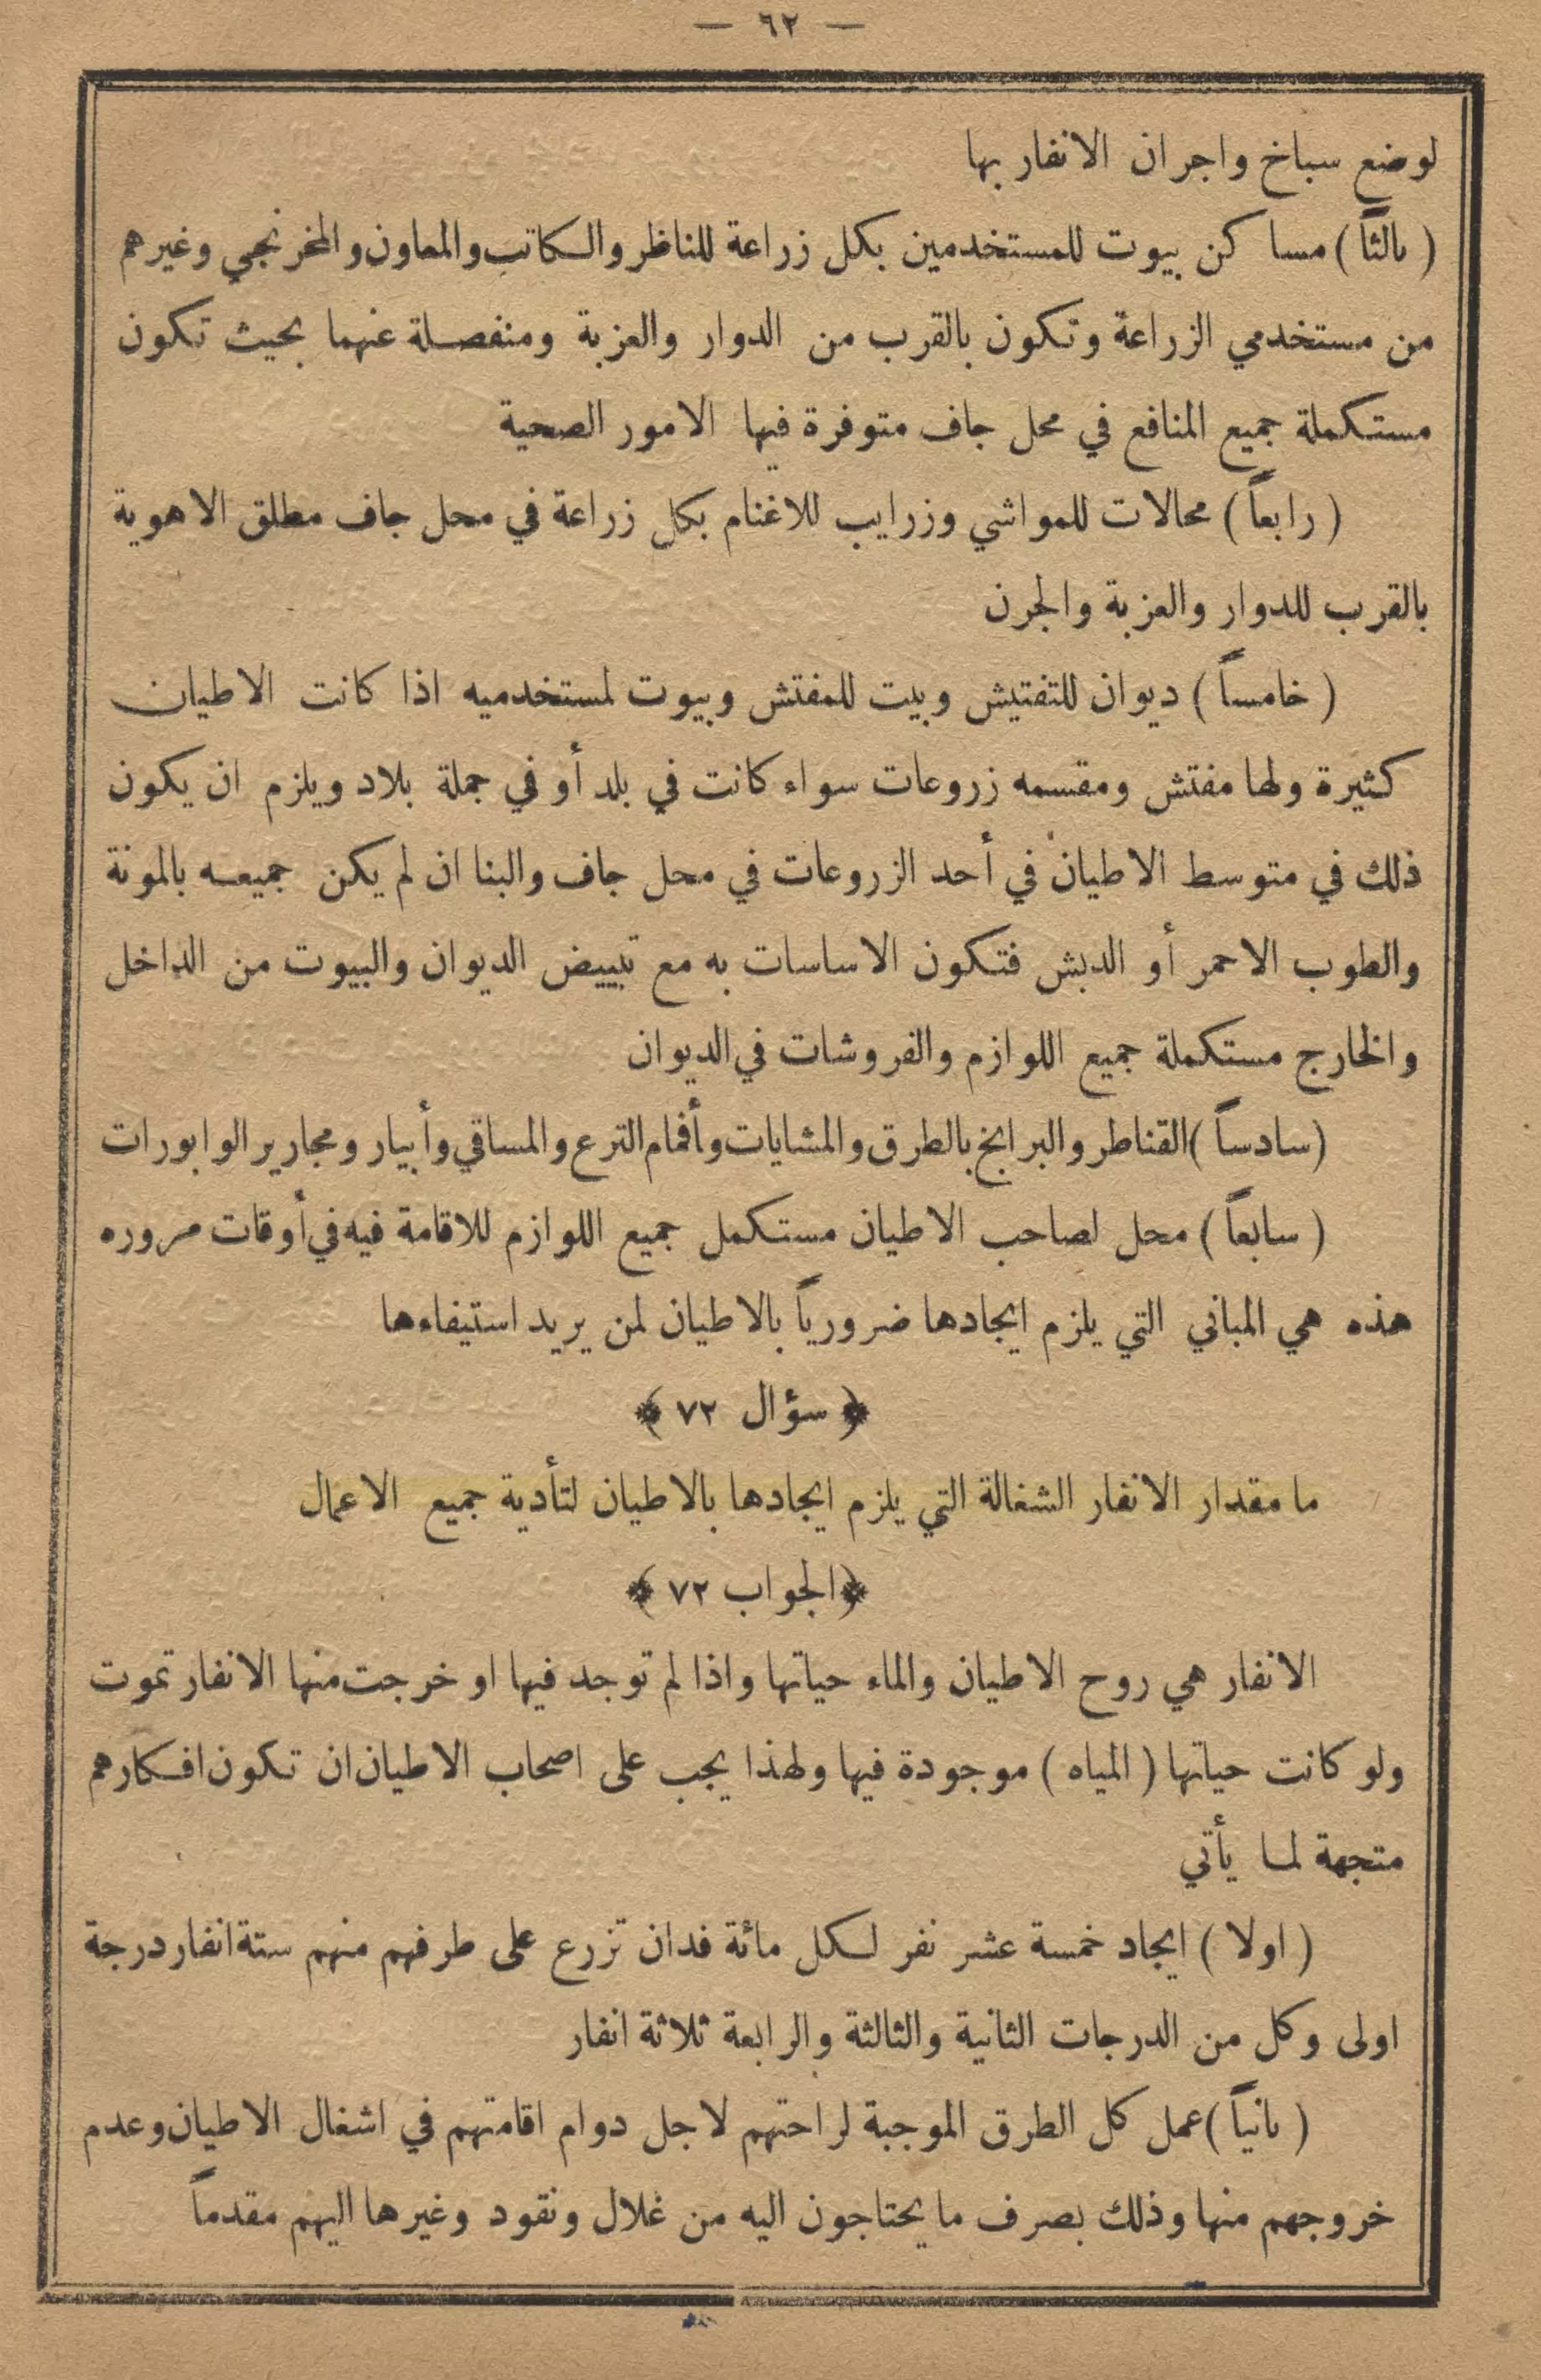 — ٦٢ —
لوضع سباخ واجران الانفار بها
( ثالثاً ) مساكن بيوت للمستخدمين بكل زراعة للناظر والكاتب والمعاون والمخزنجي وغيرهم
من مستخدمي الزراعة وتكون بالقرب من الدوار والعزبة ومنفصلة عنهما بحيث تكون
مستكملة جميع المنافع في محل جاف متوفرة فيها الامور الصحية
( رابعاً ) محالات للمواشي وزرايب للاغنام بكل زراعة في محل جاف مطلق الاهوية
بالقرب للدوار والعزبة والجرن
( خامساً ) ديوان للتفتيش وبيت للمفتش وبيوت لمستخدميه اذا كانت الاطيان
كثيرة ولها مفتش ومقسمه زروعات سواء كانت في بلد أو في جملة بلاد ويلزم ان يكون
ذلك في متوسط الاطيان في أحد الزروعات في محل جاف والبنا ان لم يكن جميعه بالمونة
والطوب الاحمر أو الدبش فتكون الاساسات به مع تبييض الديوان والبيوت من الداخل
والخارج مستكملة جميع اللوازم والفروشات في الديوان
( سادساً ) القناطر والبرابخ بالطرق والمشايات وأفمام الترع والمساقي وأبيار ومجارير الوابورات
( سابعاً ) محل لصاحب الاطيان مستكمل جميع اللوازم للاقامة فيه في أوقات مروره
هذه هي المباني التي يلزم ايجادها ضرورياً بالاطيان لمن يريد استيفاءها
﴿ سؤال ٧٢ ﴾
ما مقدار الانفار الشغالة التي يلزم ايجادها بالاطيان لتأدية جميع الاعمال
﴿ الجواب ٧٢ ﴾
الانفار هي روح الاطيان والماء حياتها واذا لم توجد فيها او خرجت منها الانفار تموت
ولو كانت حياتها ( المياه ) موجودة فيها ولهذا يجب على اصحاب الاطيان ان تكون افكارهم
متجهة لما يأتي
( اولا ) ايجاد خمسة عشر نفر لكل مائة فدان تزرع على طرفهم منهم ستة انفار درجة
اولى وكل من الدرجات الثانية والثالثة والرابعة ثلاثة انفار
( ثانياً ) عمل كل الطرق الموجبة لراحتهم لاجل دوام اقامتهم في اشغال الاطيان وعدم
خروجهم منها وذلك بصرف ما يحتاجون اليه من غلال ونقود وغيرها اليهم مقدماً